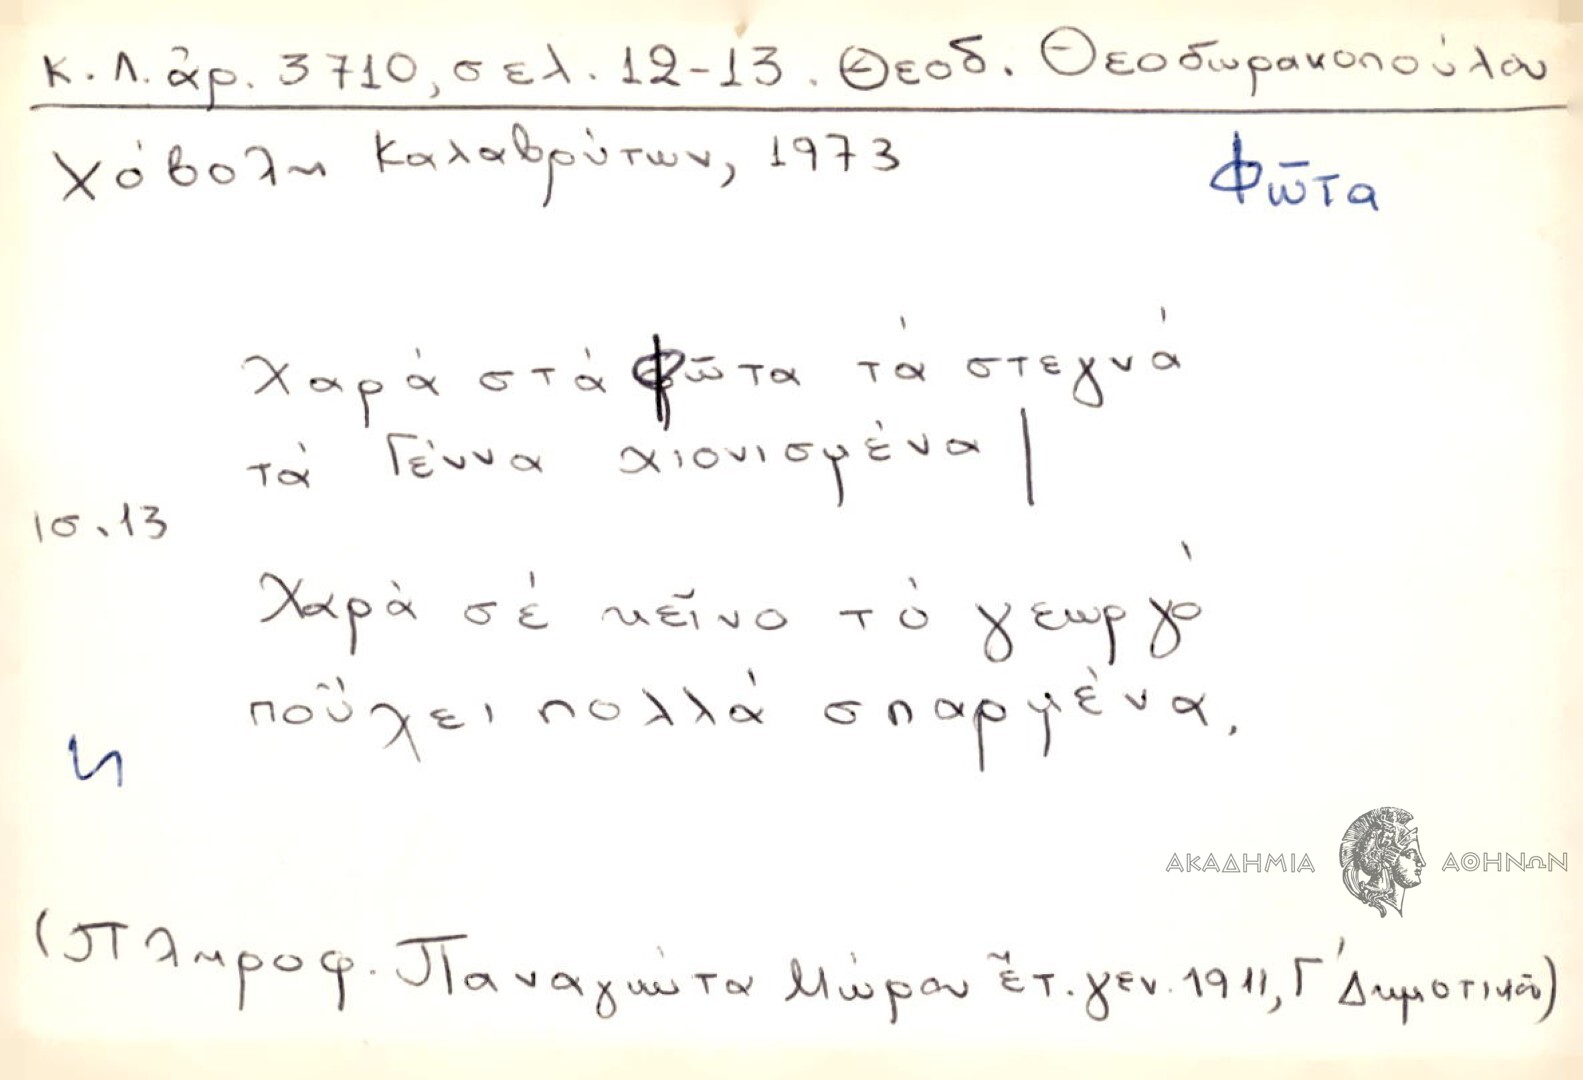 Κ.Λ. ἀρ. 3710, σελ. 12-13. Θεοδ. Θεοδωρακοπούλου
Χόβολη Καλαβρύτων, 1973
Φῶτα
Χαρά στά Φῶτα τά στεγνά
τά Γέννα χιονισμένα |
ισ. 13
Χαρὰ σέ κεῖνο τό γεωργό
ποὔχει πολλά σπαρμένα.
ΑΚΑΔΗΜΙΑ ΑΘΗΝΩΝ
(Πληροφ. Παναγιώτα Μώρου ἔτ. γεν. 1911, Γ' Δημοτικοῦ)